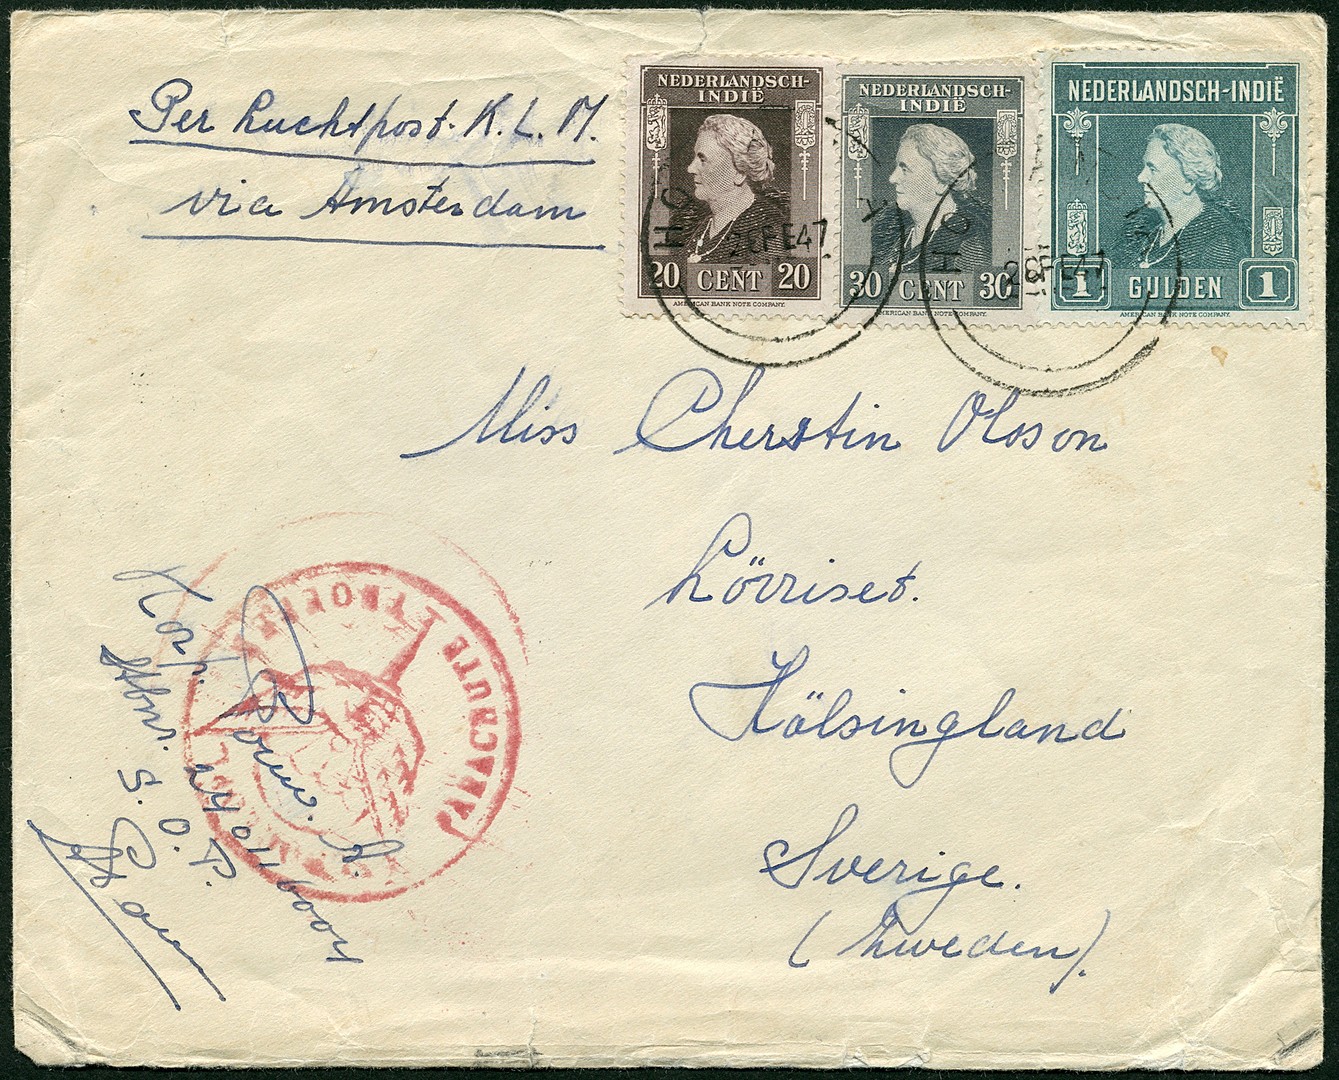 Per Luchtpost. K. L. M.
via Amsterdam
NEDERLANDSCH-
INDIË
20 CENT 20
AMERICAN BANK NOTE COMPANY.
NEDERLANDSCH-
INDIË
30 CENT 30
AMERICAN BANK NOTE COMPANY.
NEDERLANDSCH-INDIË
1 GULDEN 1
AMERICAN BANK NOTE COMPANY.
FE 47
FE 47
Miss Cherstin Oloson
Lövriset.
Hälsingland
Sverige.
(Zweden).
PARACHUTE
Korp.